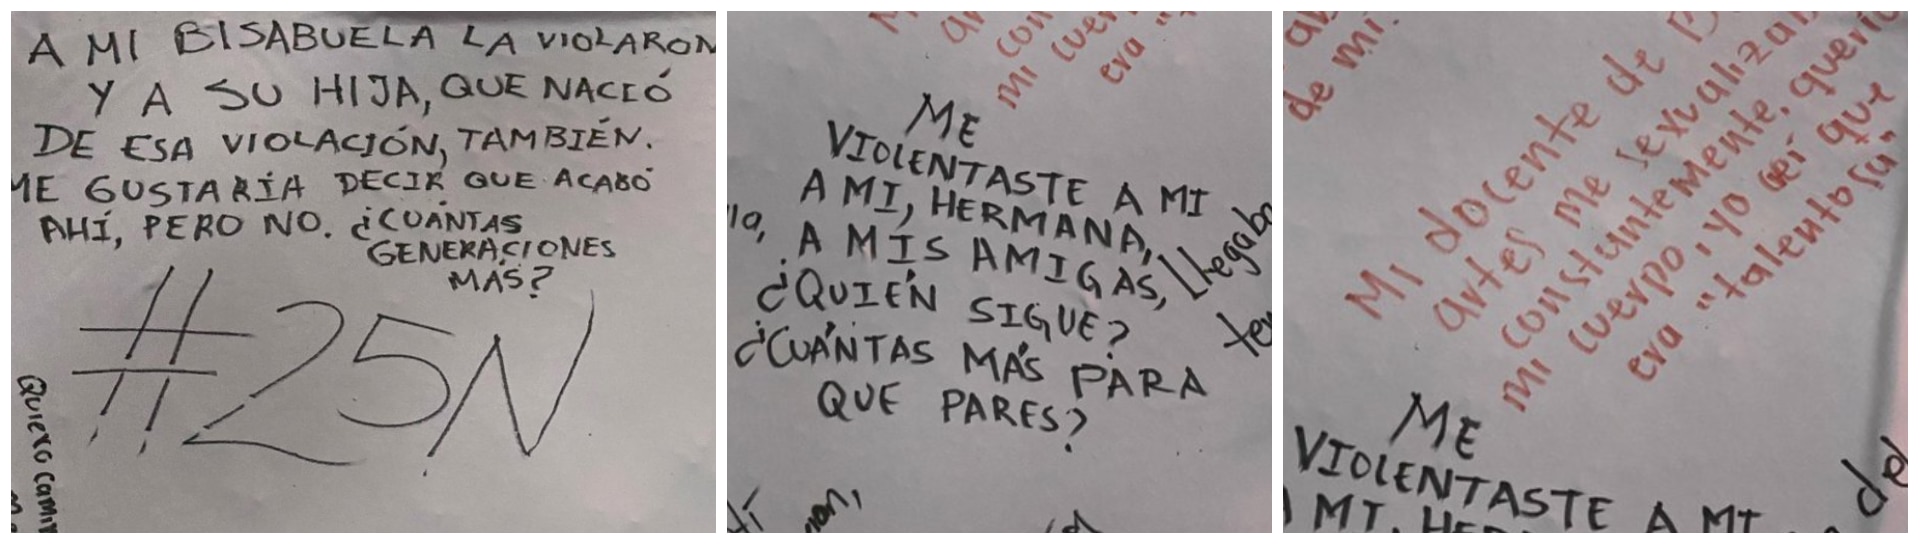 A MI BISABUELA LA VIOLARON
Y A SU HIJA, QUE NACIÓ
DE ESA VIOLACIÓN, TAMBIÉN.
ME GUSTARÍA DECIR QUE ACABÓ
AHÍ, PERO NO. ¿CUÁNTAS
GENERACIONES
MÁS?
#25N
Quiero
ME
VIOLENTASTE A MI
A MI, HERMANA,
A MIS AMIGAS,
¿QUIÉN SIGUE?
¿CUÁNTAS MÁS PARA
QUE PARES?
mi
era
de mi.
Mi docente de
artes me
constantemente,
mi cuerpo, yo creí que
era "talentosa"
ME
VIOLENTASTE A MI